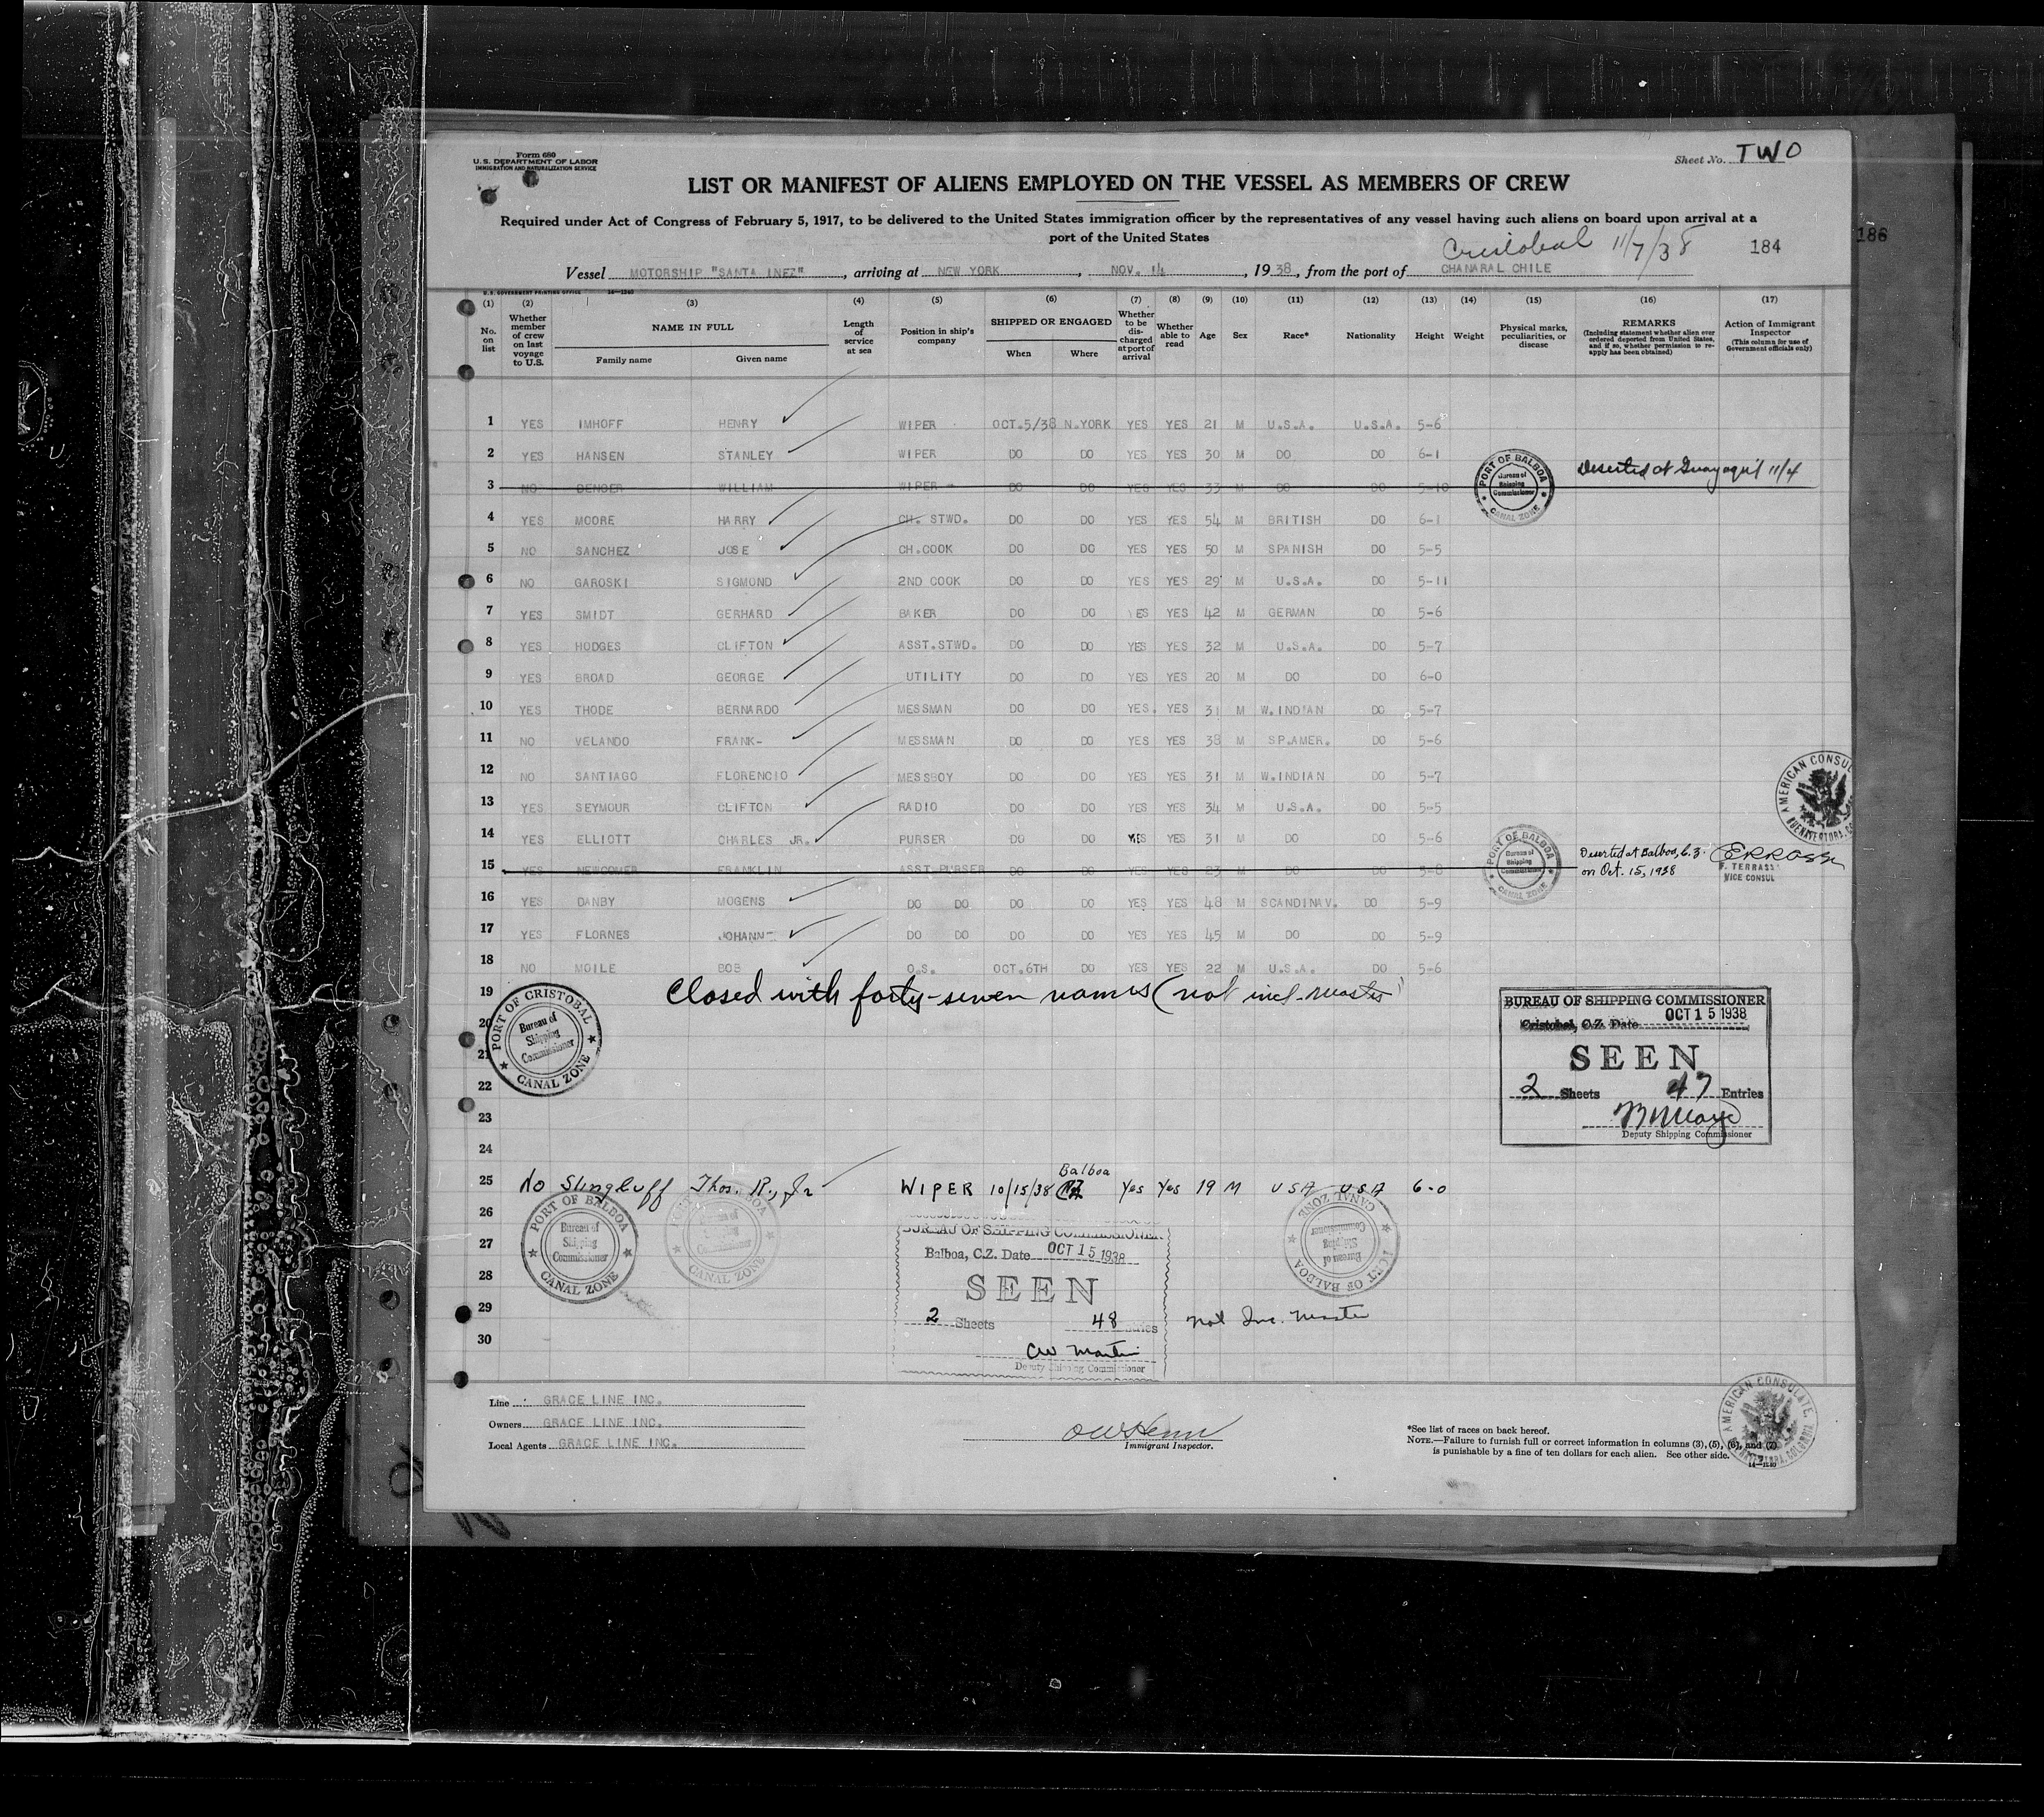 Form 680
U.S. DEPARTMENT OF LABOR
IMMIGRATION AND NATURALIZATION SERVICE
Sheet No. TWO
LIST OR MANIFEST OF ALIENS EMPLOYED ON THE VESSEL AS MEMBERS OF CREW
Required under Act of Congress of February 5, 1917, to be delivered to the United States immigration officer by the representatives of any vessel having such aliens on board upon arrival at a
port of the United States
Cristobal 11/7/38
184
186
Vessel MOTORSHIP "SANTA INEZ", arriving at NEW YORK, NOV. 14, 1938, from the port of CHANARAL CHILE
U.S. GOVERNMENT PRINTING OFFICE 14-1240
(1) (2) (3) (4) (5) (6) (7) (8) (9) (10) (11) (12) (13) (14) (15) (16) (17)
No. on list
Whether member of crew on last voyage to U.S.
NAME IN FULL
Family name Given name
Length of service at sea
Position in ship's company
SHIPPED OR ENGAGED
When Where
Whether to be discharged at port of arrival
Whether able to read
Age Sex Race* Nationality Height Weight
Physical marks, peculiarities, or disease
REMARKS
(Including statement whether alien ever ordered deported from United States, and if so, whether permission to reapply has been obtained)
Action of Immigrant Inspector
(This column for use of Government officials only)
1 YES IMHOFF HENRY WIPER OCT.5/38 N.YORK YES YES 21 M U.S.A. U.S.A. 5-6
2 YES HANSEN STANLEY WIPER DO DO YES YES 30 M DO DO 6-1
3 NO DENGER WILLIAM WIPER DO DO YES YES 33 M DO DO 5-10 Deserted at Guayaquil 11/4
4 YES MOORE HARRY CH. STWD. DO DO YES YES 54 M BRITISH DO 6-1
5 NO SANCHEZ JOSE CH.COOK DO DO YES YES 50 M SPANISH DO 5-5
6 NO GAROSKI SIGMOND 2ND COOK DO DO YES YES 29 M U.S.A. DO 5-11
7 YES SMIDT GERHARD BAKER DO DO YES YES 42 M GERMAN DO 5-6
8 YES HODGES CLIFTON ASST.STWD. DO DO YES YES 32 M U.S.A. DO 5-7
9 YES BROAD GEORGE UTILITY DO DO YES YES 20 M DO DO 6-0
10 YES THODE BERNARDO MESSMAN DO DO YES. YES 31 M W.INDIAN DO 5-7
11 NO VELANDO FRANK- MESSMAN DO DO YES YES 38 M SP.AMER. DO 5-6
12 NO SANTIAGO FLORENCIO MESSBOY DO DO YES YES 31 M W.INDIAN DO 5-7
13 YES SEYMOUR CLIFTON RADIO DO DO YES YES 34 M U.S.A. DO 5-5
14 YES ELLIOTT CHARLES JR. PURSER DO DO YES YES 31 M DO DO 5-6
15 YES NEWCOMER FRANKLIN ASST.PURSER DO DO YES YES 23 M DO DO 5-8 Deserted at Balboa, C.Z. on Oct. 15, 1938
VICE CONSUL
16 YES DANBY MOGENS DO DO DO DO YES YES 48 M SCANDINAV. DO 5-9
17 YES FLORNES JOHAN DO DO DO DO YES YES 45 M DO DO 5-9
18 NO MOILE BOB O.S. OCT.6TH DO YES YES 22 M U.S.A. DO 5-6
19 Closed with forty-seven names (not incl. master)
20
21
22
23
24
25 No Slingluff Thos. R., Jr WIPER 10/15/38 Balboa CZ Yes Yes 19 M USA USA 6-0
26
27
28
29
30
PORT OF BALBOA
Bureau of Shipping Commissioner
CANAL ZONE
AMERICAN CONSU
PORT OF BALBOA
Bureau of Shipping Commissioner
CANAL ZONE
PORT OF CRISTOBAL
Bureau of Shipping Commissioner
CANAL ZONE
BUREAU OF SHIPPING COMMISSIONER
Cristobal, C.Z. Date OCT 15 1938
SEEN
2 Sheets 47 Entries
Deputy Shipping Commissioner
PORT OF BALBOA
Bureau of Shipping Commissioner
CANAL ZONE
BALBOA
CANAL ZONE
PORT OF BALBOA
Bureau of Shipping Commissioner
CANAL ZONE
BUREAU OF SHIPPING COMMISSIONER
Balboa, C.Z. Date OCT 15 1938
SEEN
2 Sheets 48 Entries
not Inc. Master
CW Martin
Deputy Shipping Commissioner
Line GRACE LINE INC.
Owners GRACE LINE INC.
Local Agents GRACE LINE INC.
Immigrant Inspector.
*See list of races on back hereof.
NOTE.—Failure to furnish full or correct information in columns (3), (5), (6), and (7)
is punishable by a fine of ten dollars for each alien. See other side.
14-1240
AMERICAN CONSULATE,
BUENAVENTURA, COLOMBIA